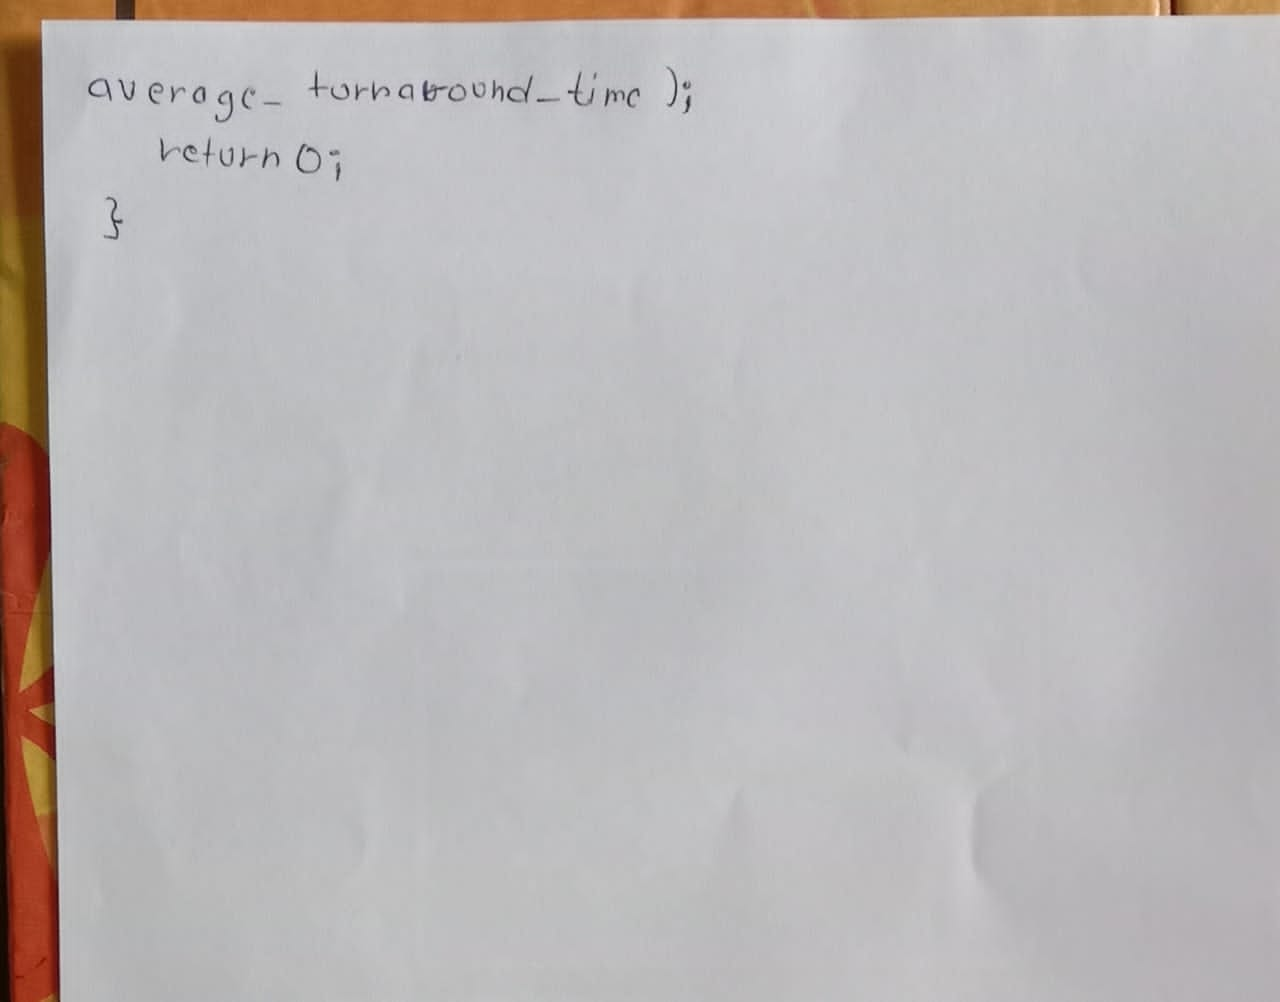 average_ turnaround_time );
return 0;
}